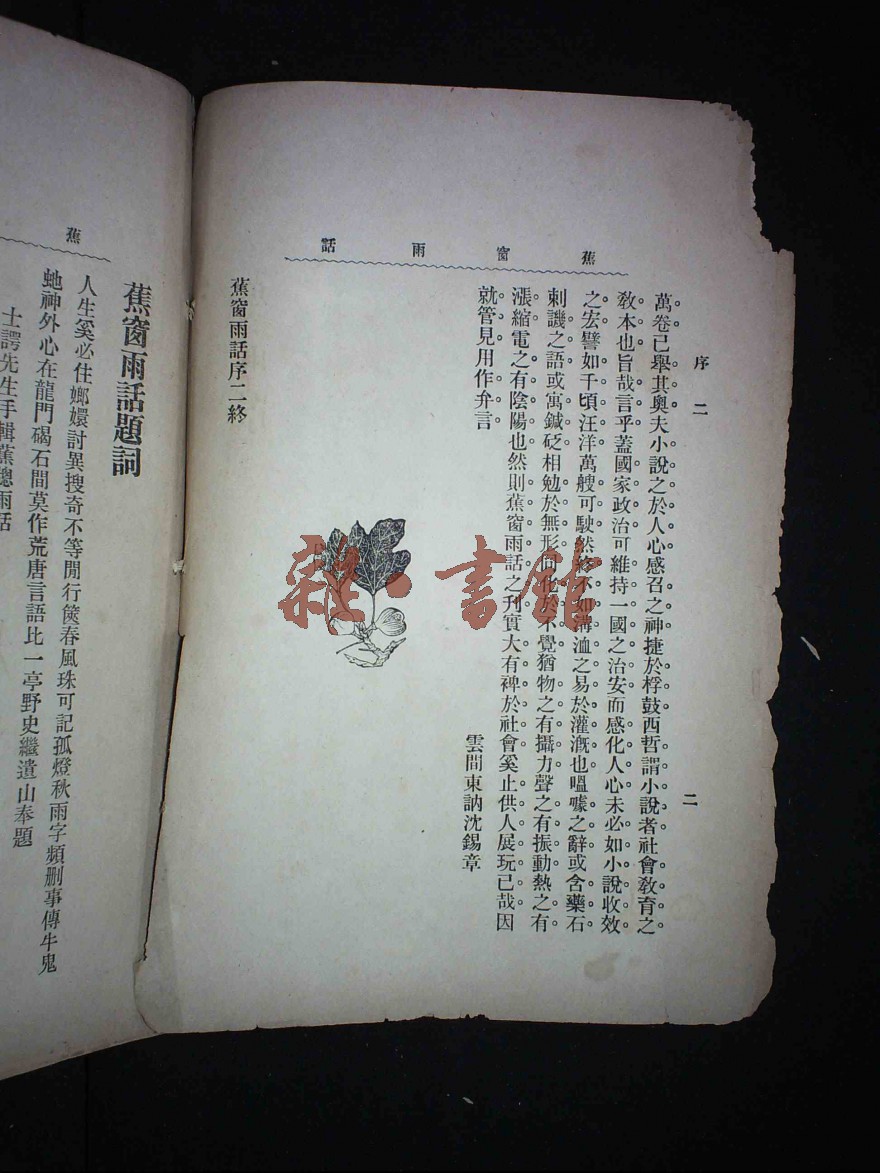 蕉窗雨話
序二
二
萬卷已舉其奧夫小說之於人心感召之神捷於桴鼓西哲謂小說者社會敎育之
敎本也旨哉言乎蓋國家政治可維持一國之治安而感化人心未必如小說收效
之宏譬如千頃汪洋萬艘可駛然終不如溝洫之易於灌漑也嗢噱之辭或含藥石
刺譏之語或寓鍼砭相勉於無形同化於不覺猶物之有攝力聲之有振動熱之有
漲縮電之有陰陽也然則蕉窗雨話之刋實大有裨於社會奚止供人展玩已哉因
就管見用作弁言
雲間東訥沈錫章
蕉窗雨話序二終
雜·書館
蕉
蕉窗雨話題詞
人生奚必住嫏嬛討異搜奇不等閒行篋春風珠可記孤燈秋雨字頻删事傳牛鬼
虵神外心在龍門碣石間莫作荒唐言語比一亭野史繼遺山奉題
士諤先生手輯蕉牕雨話